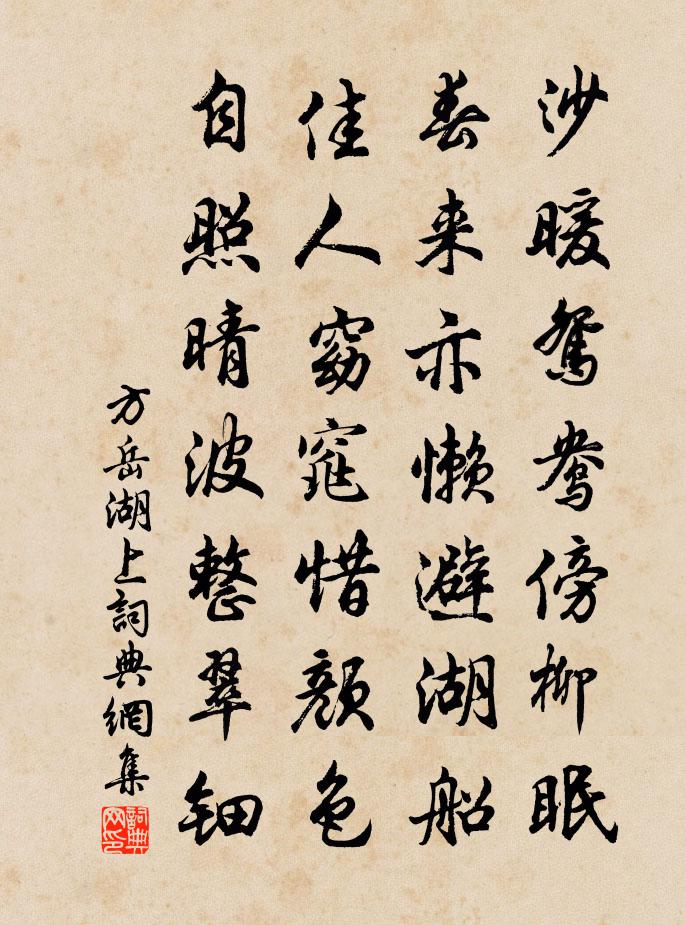 沙暖鸳鸯傍柳眠
春来亦懒避湖船
佳人窈窕惜颜色
自照晴波整翠钿
方岳湖上詞典網集
詞典網印